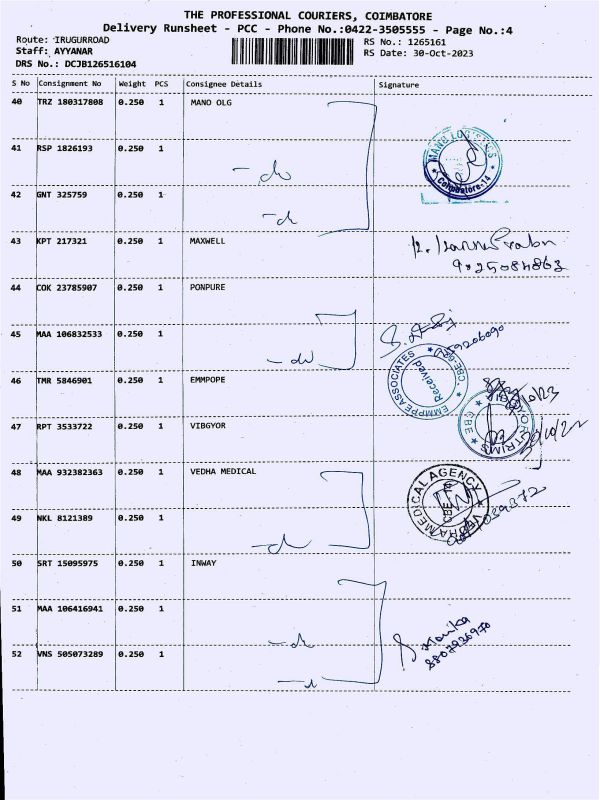 THE PROFESSIONAL COURIERS, COIMBATORE
Delivery Runsheet - PCC - Phone No.:0422-3505555 - Page No.:4
Route: IRUGURROAD
RS No.: 1265161
Staff: AYYANAR
RS Date: 30-Oct-2023
DRS No.: DCJB126516104
S No Consignment No Weight PCS Consignee Details Signature
40 TRZ 180317808 0.250 1 MANO OLG
41 RSP 1826193 0.250 1 -do
MANO LOGISTICS
Coimbatore-14
42 GNT 325759 0.250 1 -do
43 KPT 217321 0.250 1 MAXWELL
9025084863
44 COK 23785907 0.250 1 PONPURE
45 MAA 106832533 0.250 1 -do
46 TMR 5846901 0.250 1 EMMPOPE
EMMPPE ASSOCIATES
Received
47 RPT 3533722 0.250 1 VIBGYOR
TRIMS
CBE
48 MAA 932382363 0.250 1 VEDHA MEDICAL
VEDHA MEDICAL AGENCY
49 NKL 8121389 0.250 1 -do
50 SRT 15095975 0.250 1 INWAY
51 MAA 106416941 0.250 1 -do
S. Monika
8807936970
52 VNS 505073289 0.250 1